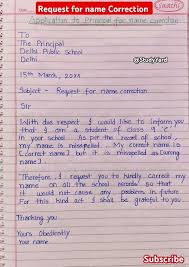 Request for name Correction
Saathi
Application to Principal for name correction
To
The Principal
Delhi Public School
Delhi
@StudyYard
15th March, 20XX
Subject - Request for name correction
Sir
With due respect I would like to inform you
that I am a student of class 9 'C'
in your school. As per the record of school,
my name is misspelled. My correct name is
(Correct name) but it is misspelled as (wrong
name).
Therefore, I request you to kindly correct my
name on all the school records so that
it would not cause any problems in future.
For this kind act I shall be grateful to you
Thanking you
Yours Obediently
Your name
Subscribe